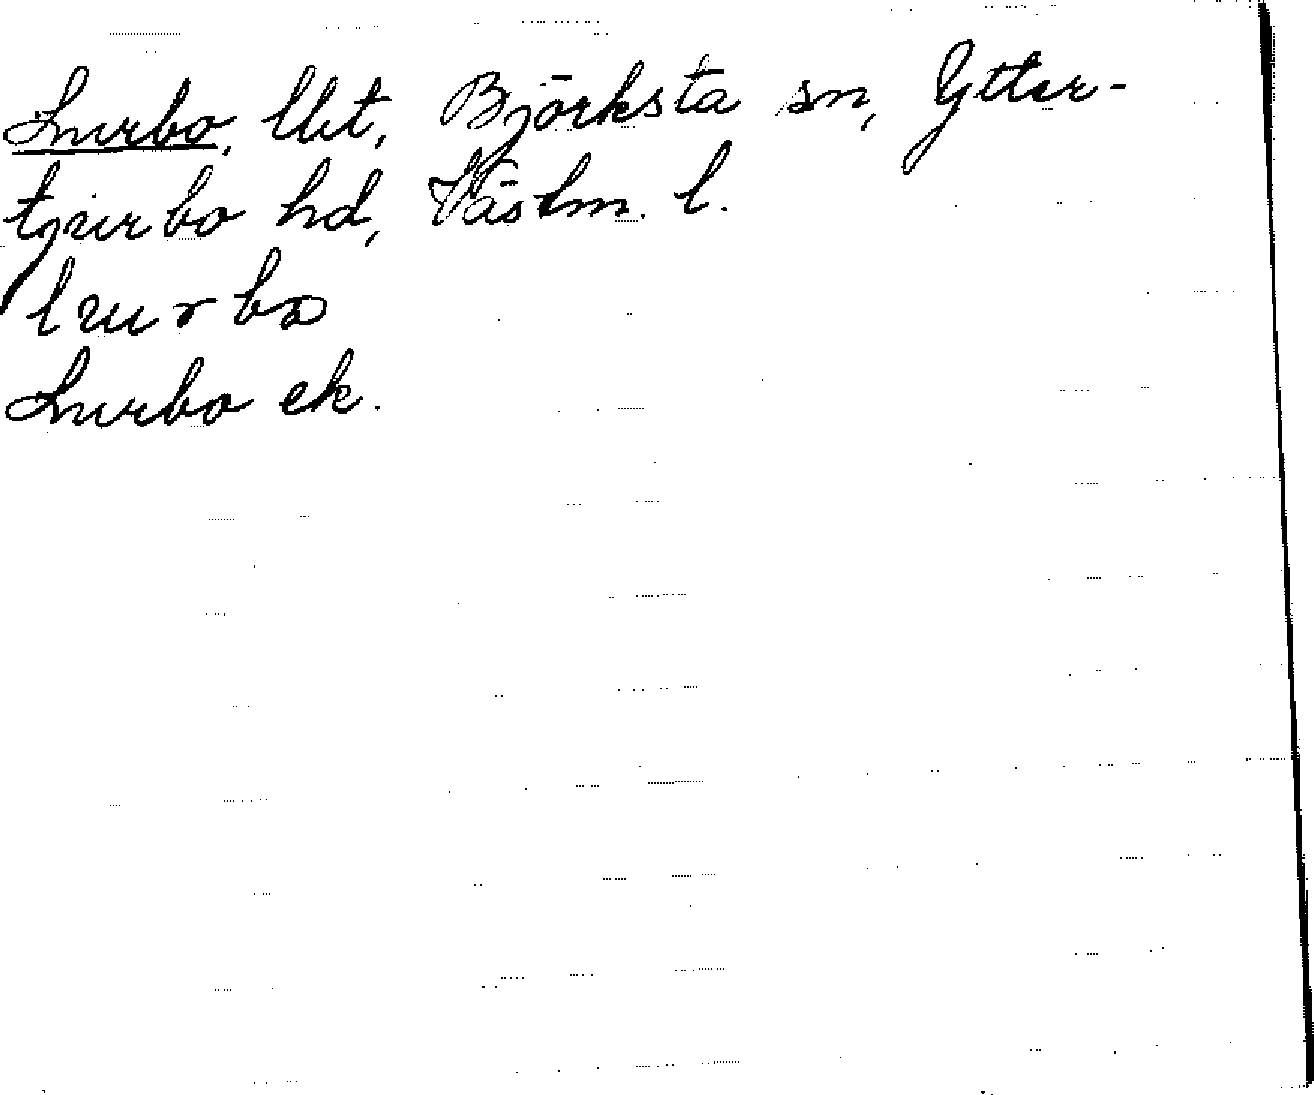 Lurbo, Björksta sn, Ytter-
tjurbo hd, Västm. l.
Lurbo ek.